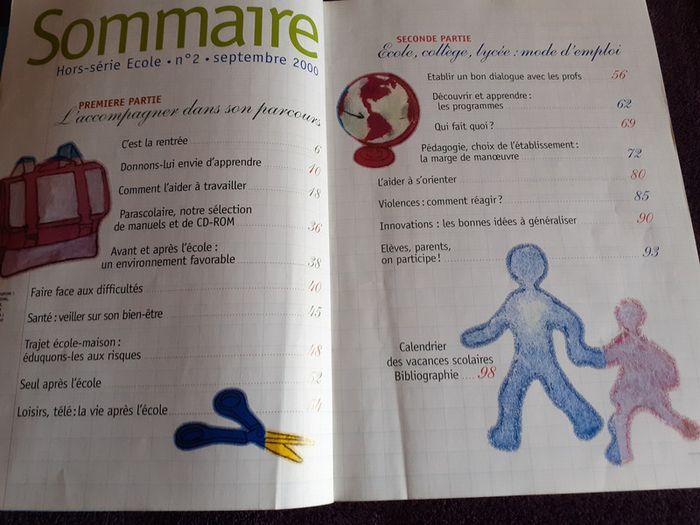 Sommaire
Hors-série Ecole • n°2 • septembre 2000
PREMIERE PARTIE
L'accompagner dans son parcours
C'est la rentrée 6
Donnons-lui envie d'apprendre 10
Comment l'aider à travailler 18
Parascolaire, notre sélection
de manuels et de CD-ROM 36
Avant et après l'école :
un environnement favorable 38
Faire face aux difficultés 40
Santé : veiller sur son bien-être 45
Trajet école-maison :
éduquons-les aux risques 48
Seul après l'école 52
Loisirs, télé : la vie après l'école 54
SECONDE PARTIE
Ecole, collège, lycée : mode d'emploi
Etablir un bon dialogue avec les profs 56
Découvrir et apprendre :
les programmes 62
Qui fait quoi ? 69
Pédagogie, choix de l'établissement :
la marge de manœuvre 72
L'aider à s'orienter 80
Violences : comment réagir ? 85
Innovations : les bonnes idées à généraliser 90
Elèves, parents,
on participe ! 93
Calendrier
des vacances scolaires
Bibliographie 98